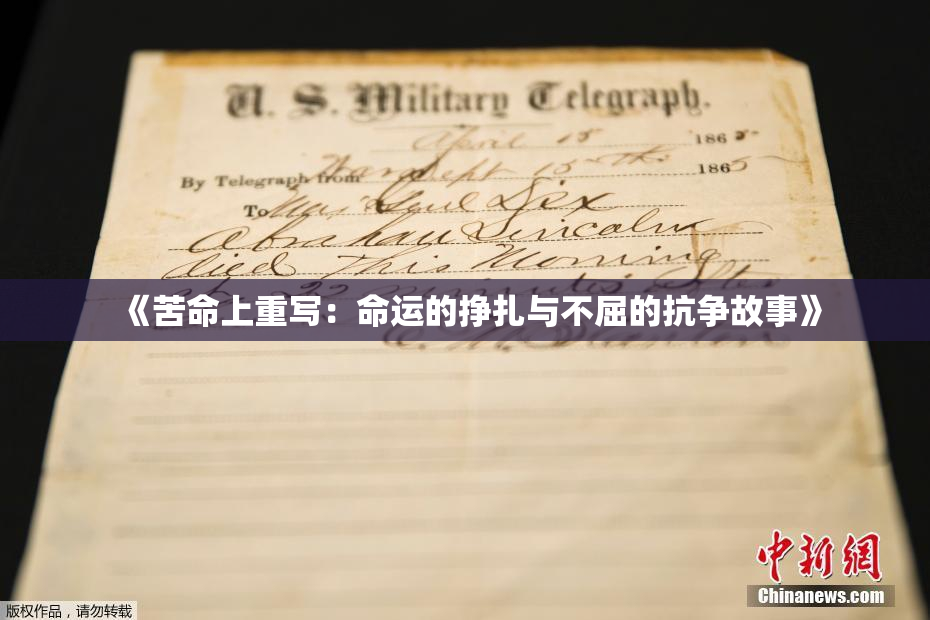 U. S. Military Telegraph.
April 15 1865
By Telegraph from War Dept 15th 1865
To Maj Genl Dix
Abraham Lincoln
died This Morning
at 22 minutes after
《苦命上重写：命运的挣扎与不屈的抗争故事》
E. M. Stanton
中新網
Chinanews.com
版权作品，请勿转载